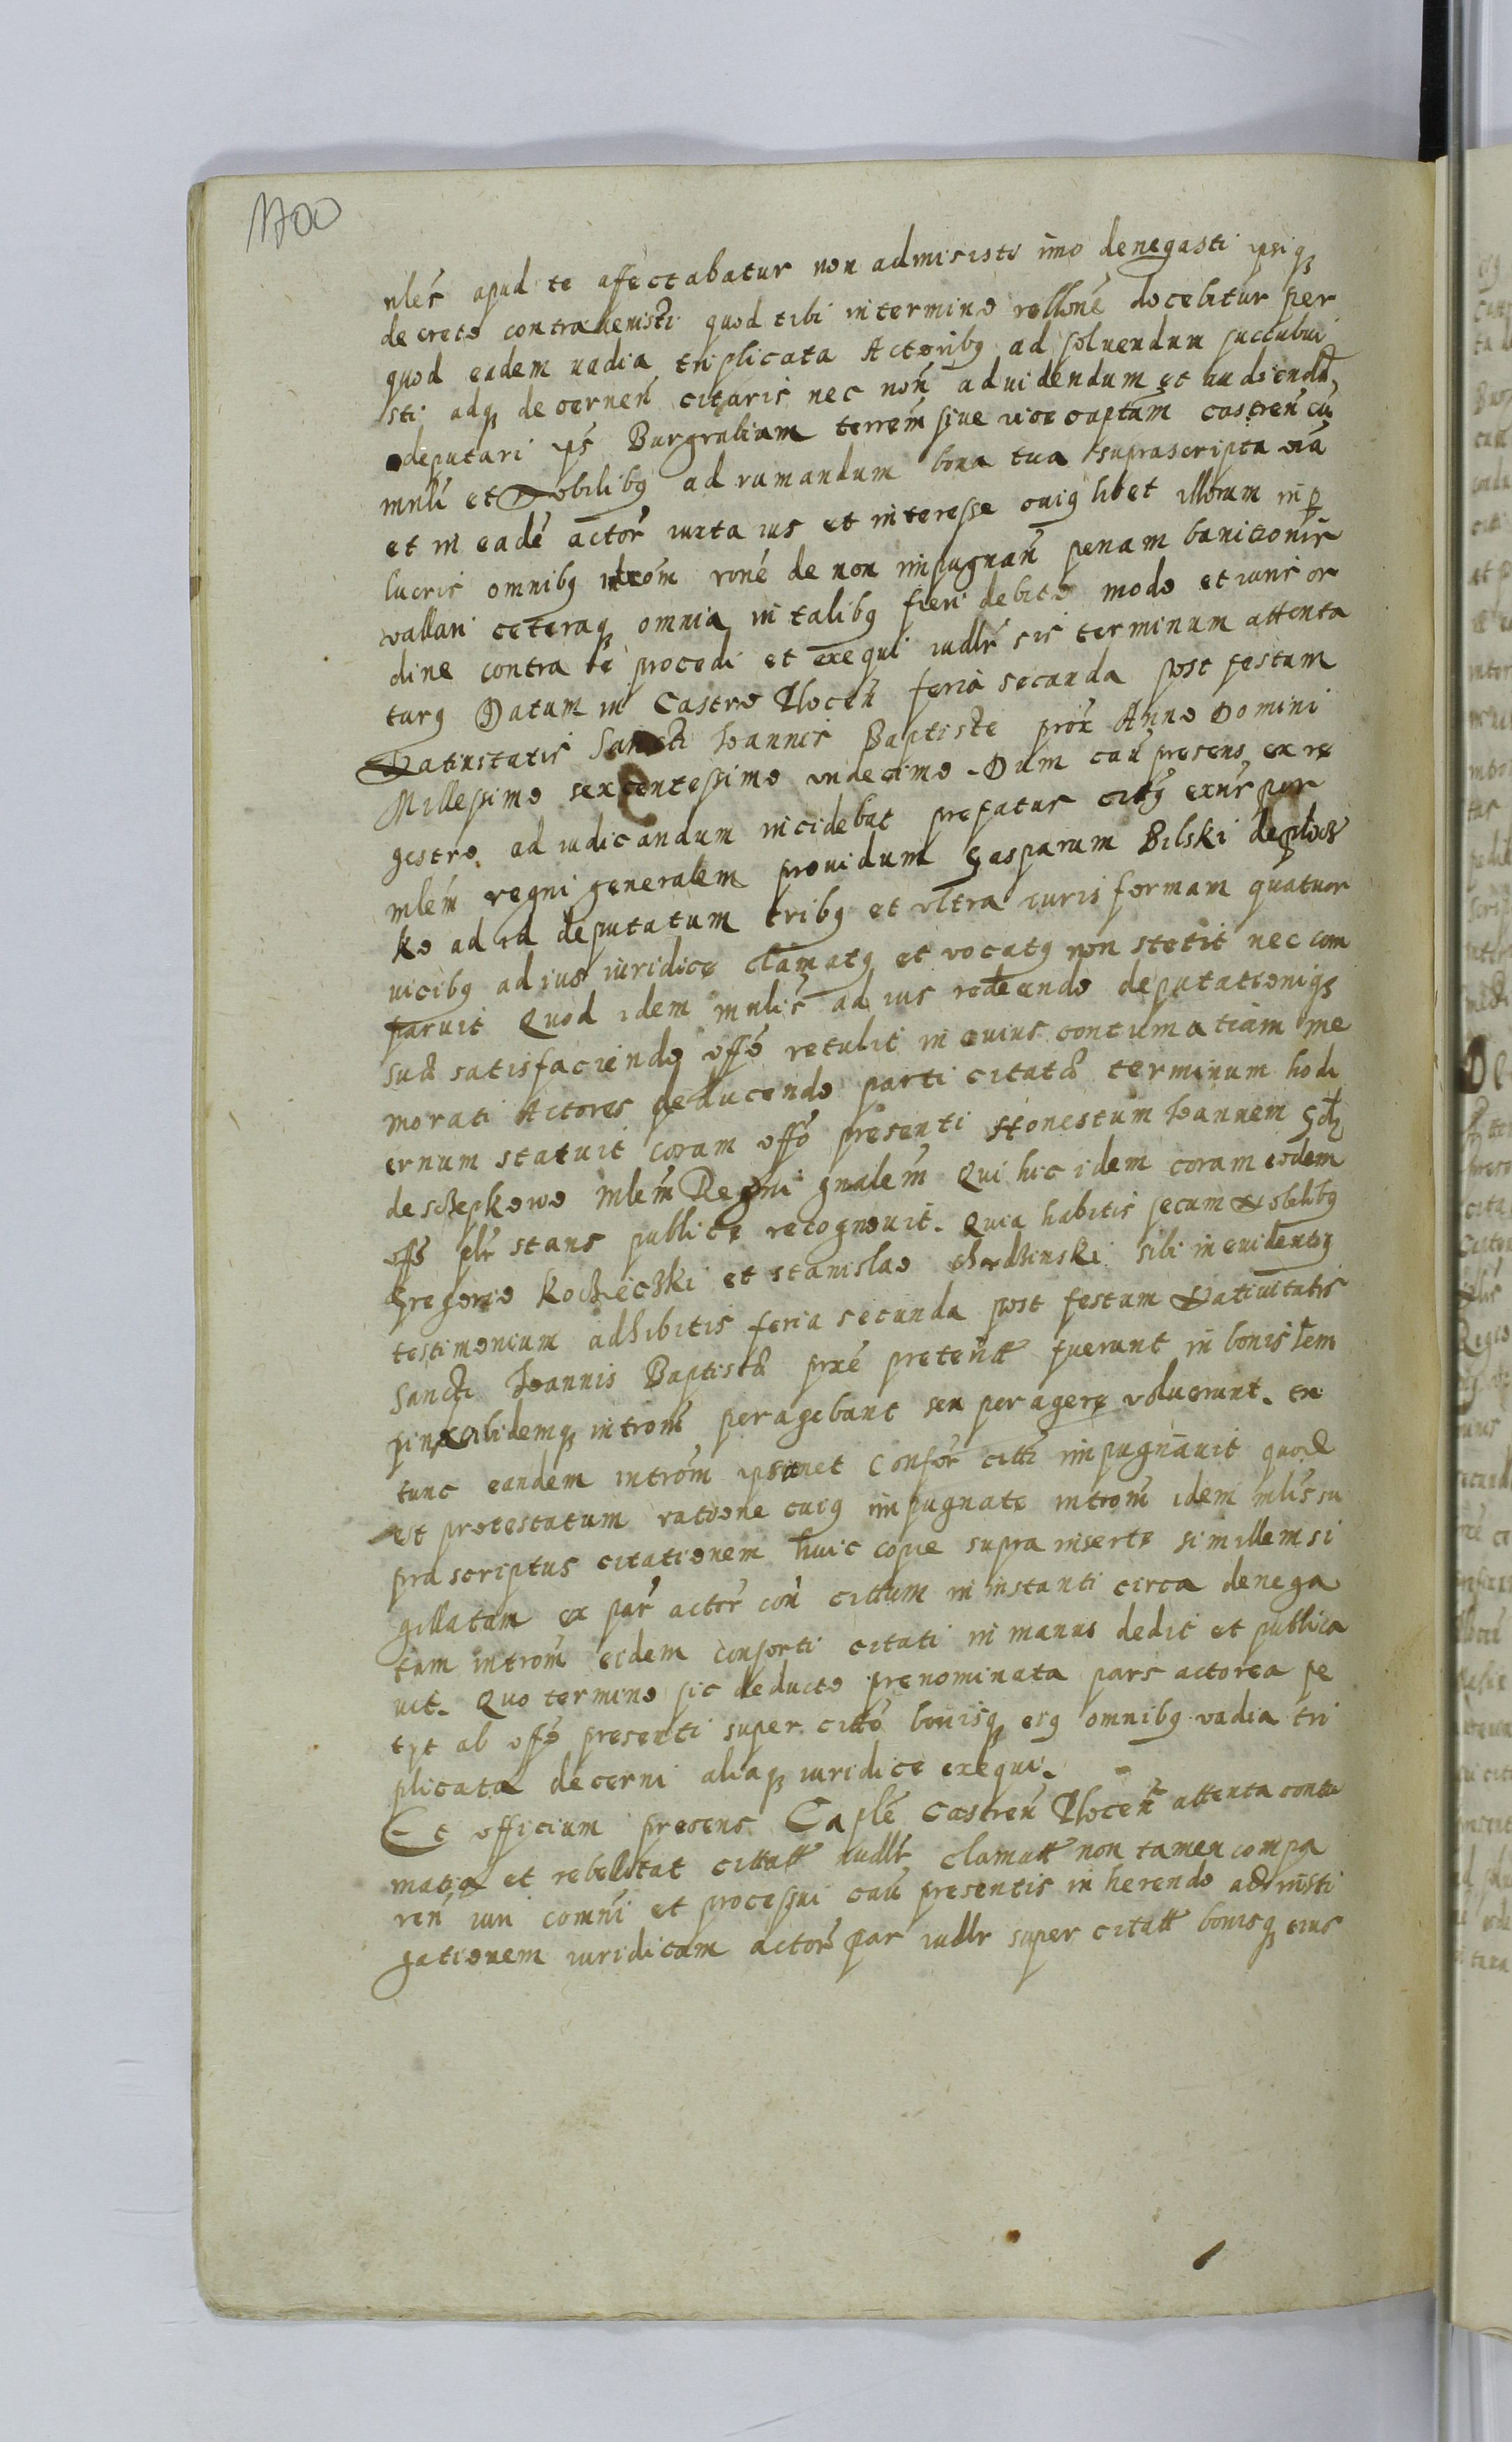 1700
nles apud te affectabatur non admisisti imo denegasti ipsiq
decreto contravenisti quod tibi in termino rellone docebitur per
quod eadem vadia triplicata Actoribq ad solvendum succubui
sti adq decernen citaris nec non ad videndum et audiendu
deputari ips Burgrabium terrem sive vice captam castren cu
mnli et Nobilibq ad rumandum bona tua suprascripta oia
et in eade actor iuxta ius et interesse cuiq libet illorum in
lucris omnibq introm rone de non impugnan penam banicionis
vallari ceteraq omnia in talibq fieri debito modo et iuris or
dine contra te procedi et exequi iudlr sis terminum attenta
turq Datum in Castro Plocen feria secunda post festum
Nativitatis Sancti Joannis Baptiste prox Anno Domini
Millessimo sexcentessimo undecimo. Dum cau presens ex re
gestro ad iudicandum incidebat prefatus citq exns per
mlem regni generalem providum Gasparum Bilski de ploc
ko ad id deputatum tribq et ultra iuris formam quatuor
vicibq ad ius iuridice clamatq et vocatq non stetit nec com
paruit Quod idem mnlis ad ius redeundo deputationiqz
sua satisfaciendo offo retulit in cuius contumatiam me
morati Actores deducendo parti citata terminum hodi
ernum statuit coram offo presenti Honestum Joannem
de sczepkowo mlem Regni gnalem Qui hic idem coram eodem
offo plr stans publice recognovit. Quia habitis secum Nobilibq
Gregorio Koczieczki et Stanislao sibi in evidentiq
testimonium adhibitis feria secunda post festum Nativitatis
Sancti Joannis Baptista prxe preteritt fuerunt in bonis Lem
pin ibidemq introm peragebant seu peragere voluerunt. tn
tunc eandem introm ipsimet Consor citti impugnavit quod
est protestatum ratione cuiq impugnate introm idem mlis su
pra scriptus citationem huic copie supra inserte similem si
gillatam ex par actor con cittum in instanti circa denega
tam introm eidem consorti citati in manus dedit et publica
vit. Quo termino sic deducto prenominata pars actorea pe
tyt ab offo presenti super citto bonisq eiq omnibq vadia tri
plicata decerni aliaq iuridice exequi.
Et officium presens Caple Castren Plocen attenta contu
matia et rebellitat cittatt iudlr clamatt non tamen compa
ren iuri comni et processui cau presentis in herendo ad insti
gationem iuridicam actor par iudlr super citatt bonisq eius